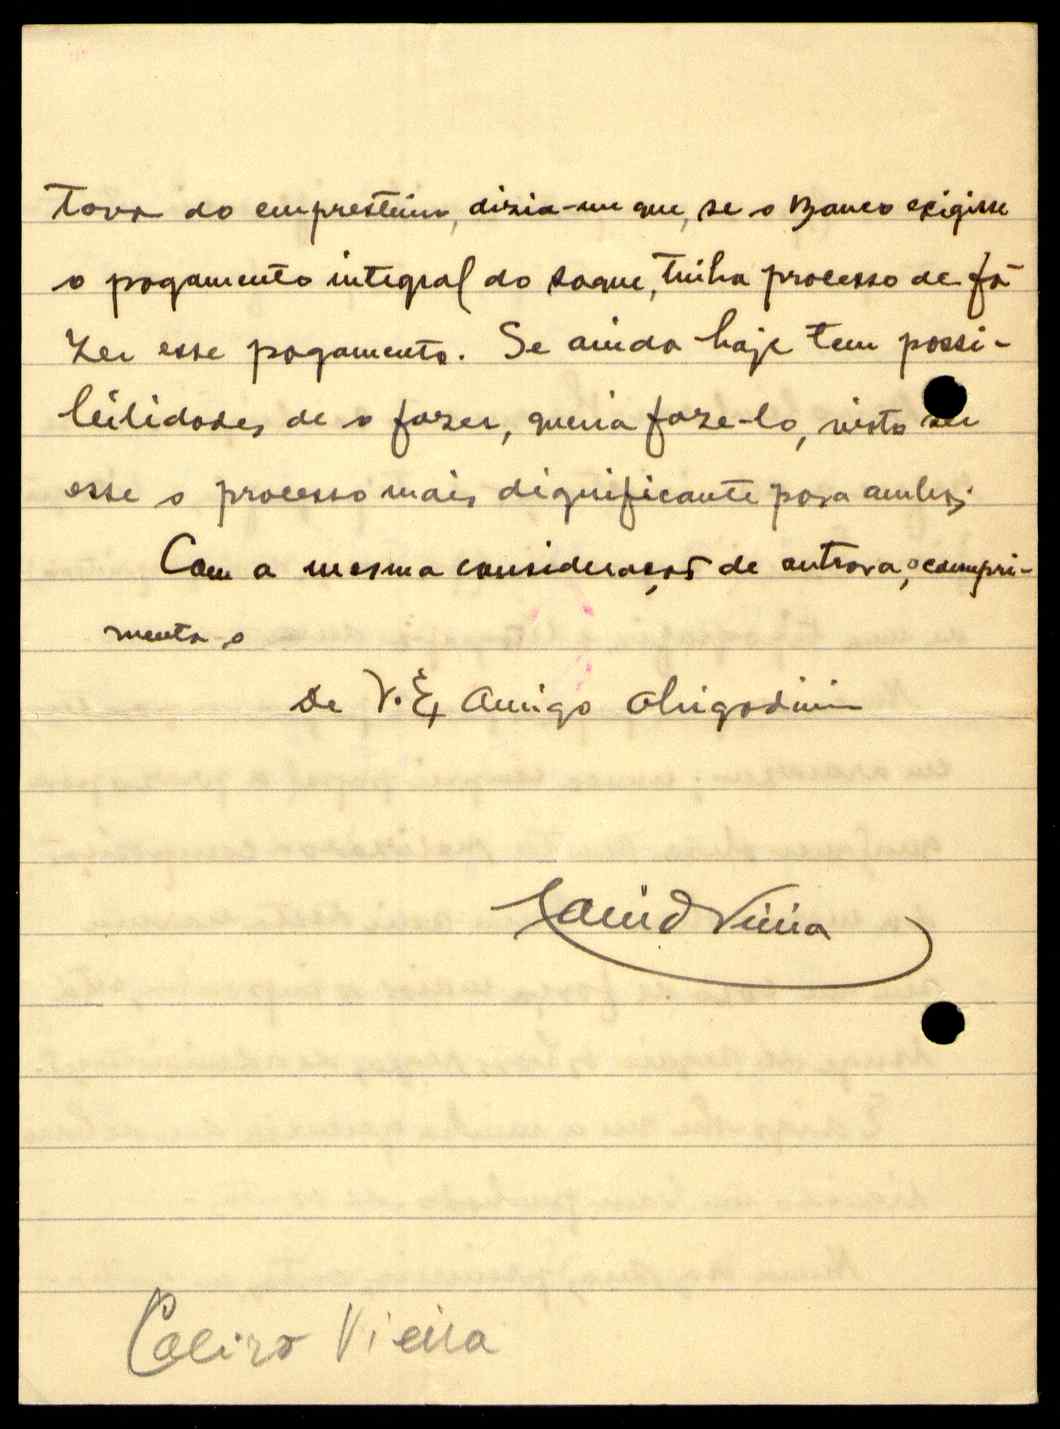 tava do emprestimo, dizia-me que, se o Banco exigisse
o pagamento integral do saque, tinha processo de fa-
zer esse pagamento. Se ainda hoje tem possi-
bilidades de o fazer, queria faze-lo, visto ser
esse o processo mais dignificante para ambos.
Com a mesma consideração de outrora, o cumpri-
menta o
De V. Ex. Amigo Obrigadissimo
Vieira
Vieira